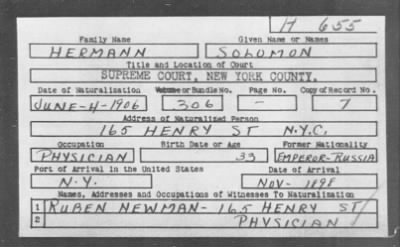 H 655
Family Name Given Name or Names
HERMANN SOLOMON
Title and Location of Court
SUPREME COURT, NEW YORK COUNTY.
Date of Naturalization Volume or Bundle No. Page No. Copy of Record No.
JUNE-4-1906 306 - 7
Address of Naturalized Person
165 HENRY ST N.Y.C.
Occupation Birth Date or Age Former Nationality
PHYSICIAN 33 EMPEROR-RUSSIA
Port of Arrival in the United States Date of Arrival
N.Y. NOV- 1898
Names, Addresses and Occupations of Witnesses To Naturalization
1 RUBEN NEWMAN- 165 HENRY ST
2 PHYSICIAN